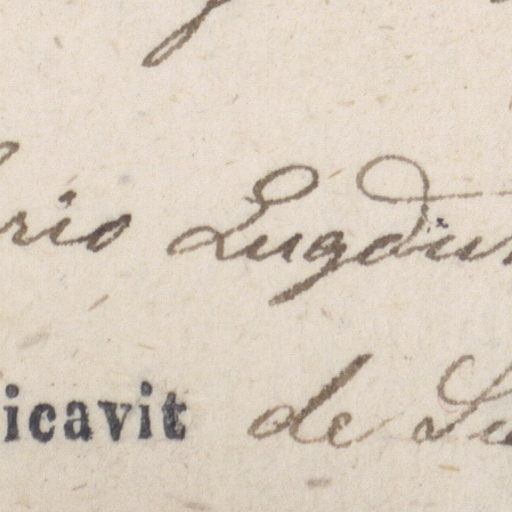 rio Lugdun
icavit de Lu